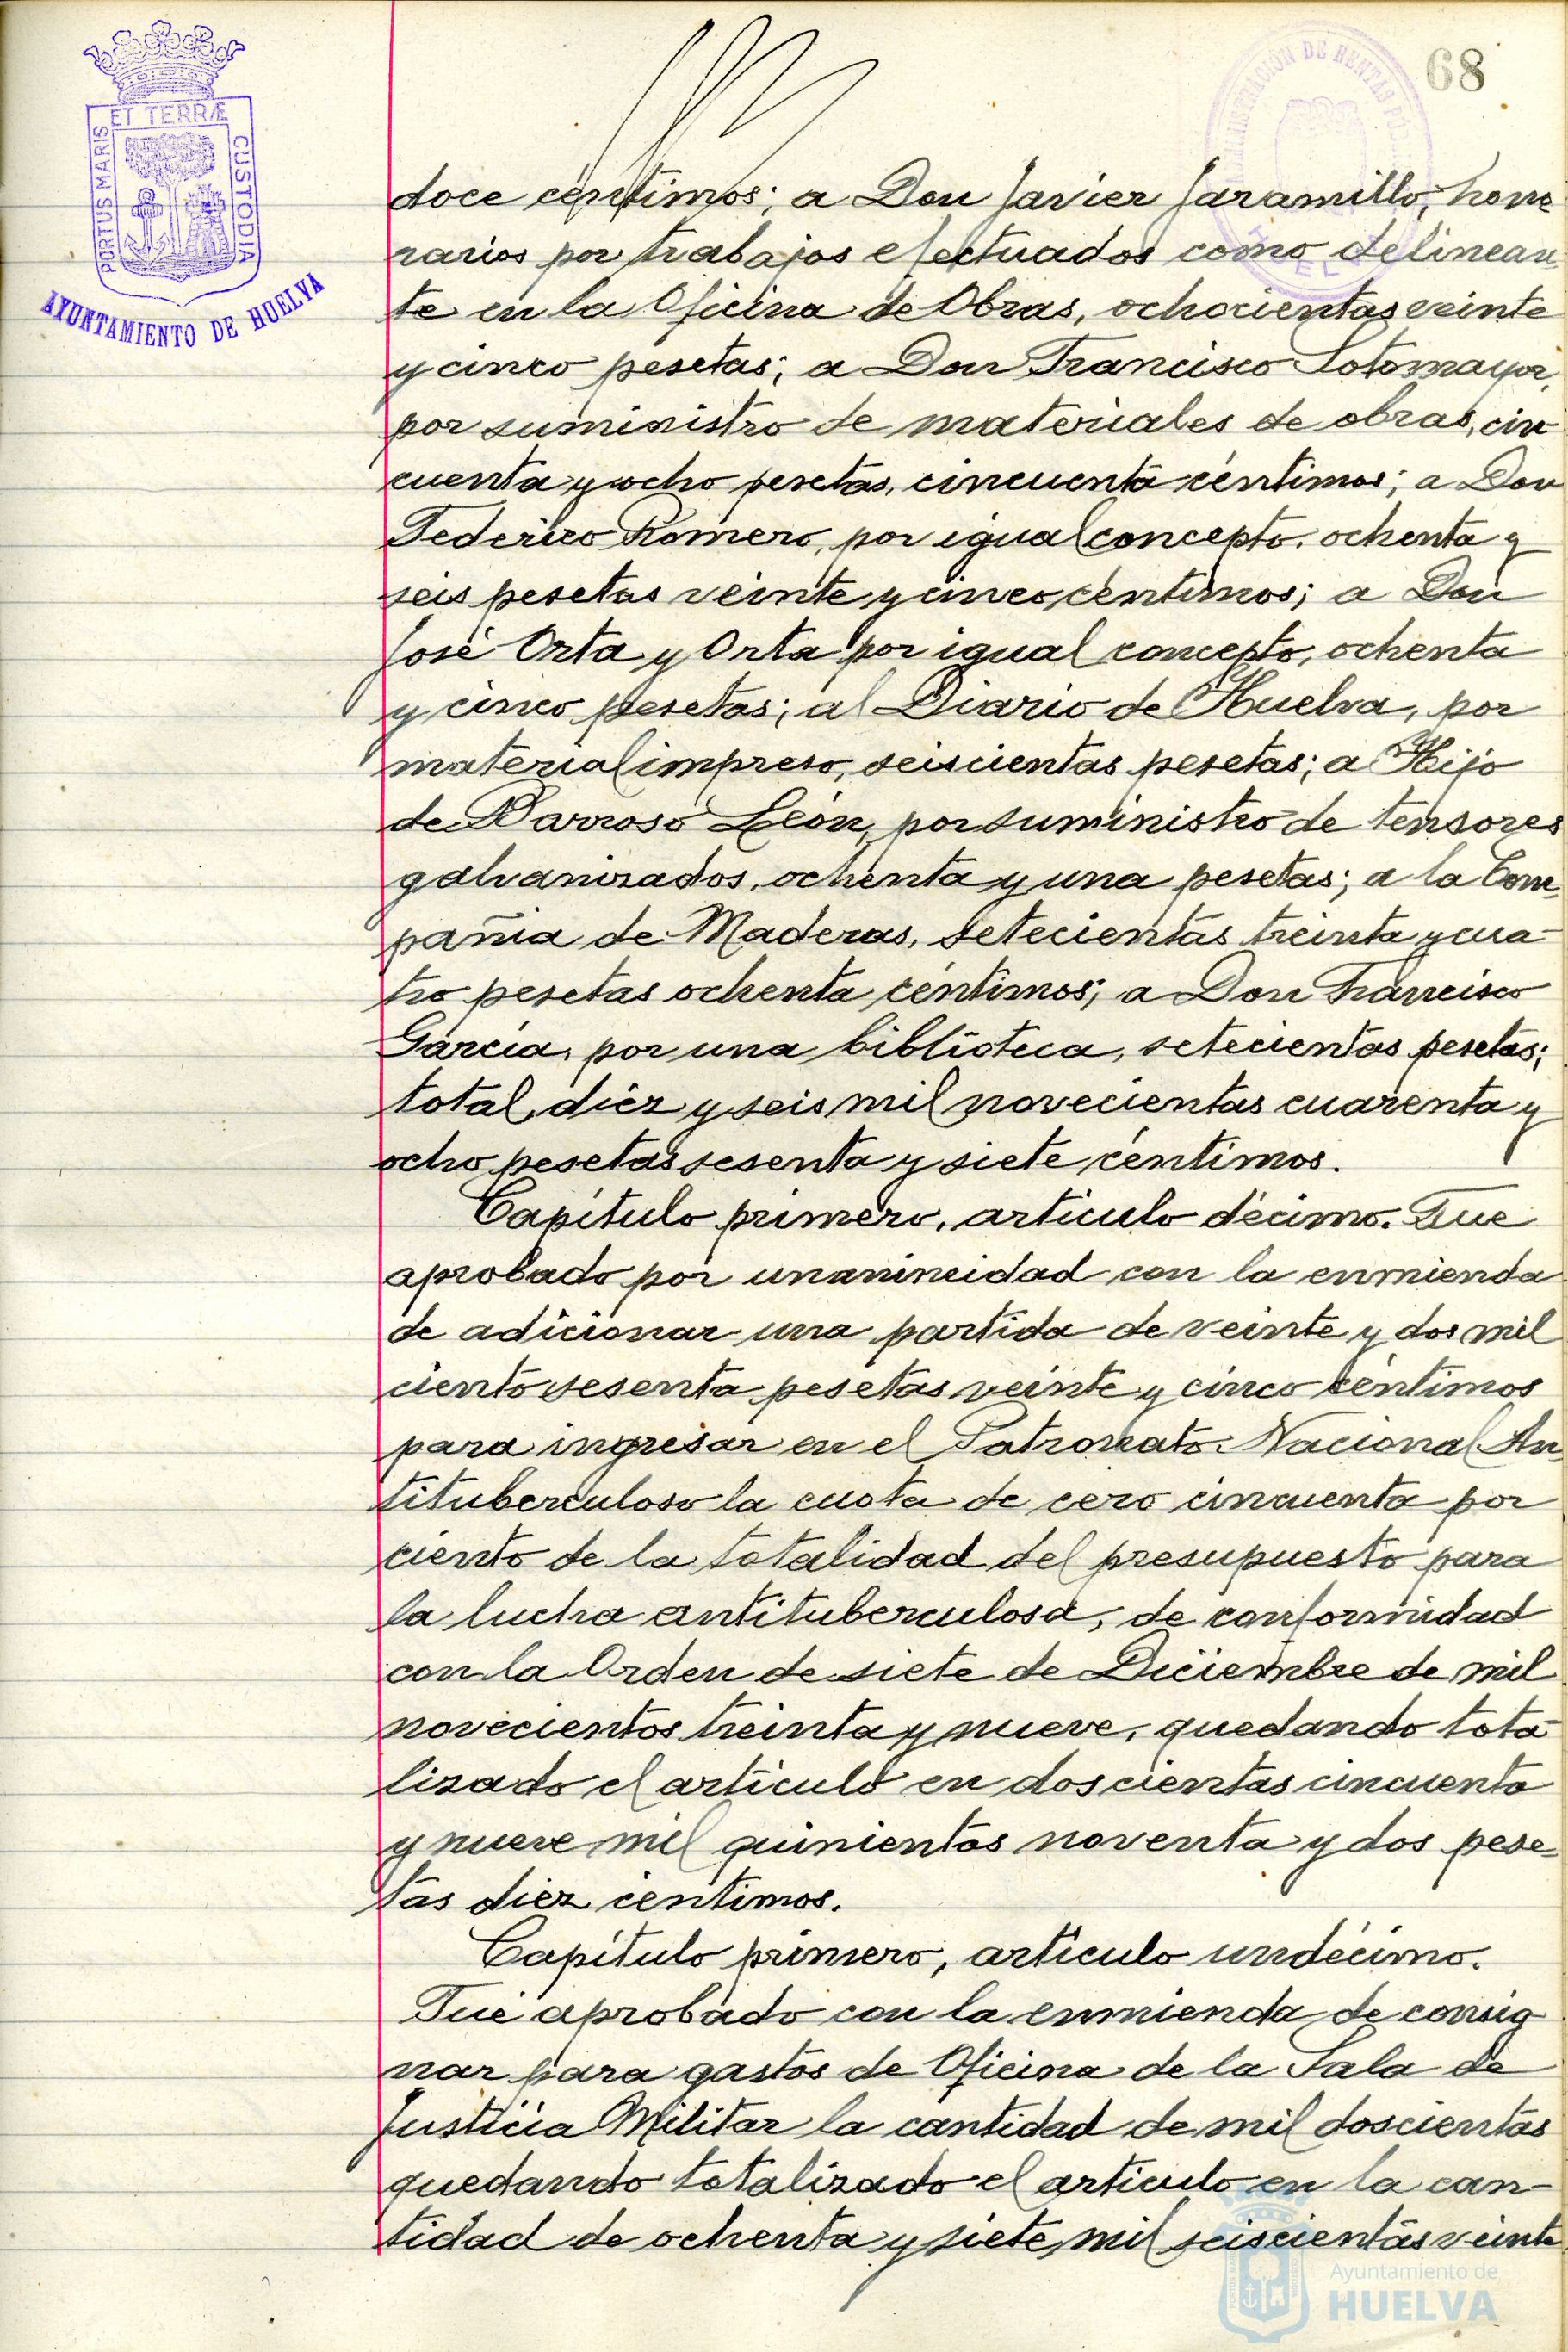 68
PORTUS MARIS ET TERRÆ CUSTODIA
AYUNTAMIENTO DE HUELVA
doce céntimos; a Don Javier Jaramillo, hono-
rarios por trabajos efectuados como delinean-
te en la Oficina de Obras, ochocientas veinte
y cinco pesetas; a Don Francisco Sotomayor,
por suministro de materiales de obras, cin-
cuenta y ocho pesetas, cincuenta céntimos; a Don
Federico Romero, por igual concepto, ochenta y
seis pesetas veinte y cinco céntimos; a Don
José Orta y Orta por igual concepto, ochenta
y cinco pesetas; al Diario de Huelva, por
material impreso, seiscientas pesetas; a Hijo
de Barroso León, por suministro de tensores
galvanizados, ochenta y una pesetas; a la Com-
pañia de Maderas, setecientas treinta y cua-
tro pesetas ochenta céntimos; a Don Francisco
García, por una biblioteca, setecientas pesetas;
total, diez y seis mil novecientas cuarenta y
ocho pesetas sesenta y siete céntimos.
Capítulo primero, artículo décimo. Fue
aprobado por unanimidad con la enmienda
de adicionar una partida de veinte y dos mil
ciento sesenta pesetas veinte y cinco céntimos
para ingresar en el Patronato Nacional An-
tituberculoso la cuota de cero cincuenta por
ciento de la totalidad del presupuesto para
la lucha antituberculosa, de conformidad
con la Orden de siete de Diciembre de mil
novecientos treinta y nueve, quedando tota-
lizado el artículo en doscientas cincuenta
y nueve mil quinientas noventa y dos pese-
tas diez centimos.
Capítulo primero, artículo undécimo.
Fué aprobado con la enmienda de consig-
nar para gastos de Oficina de la Sala de
Justicia Militar la cantidad de mil doscientas
quedando totalizado el artículo en la can-
tidad de ochenta y siete mil seiscientas veinte
Ayuntamiento de
HUELVA